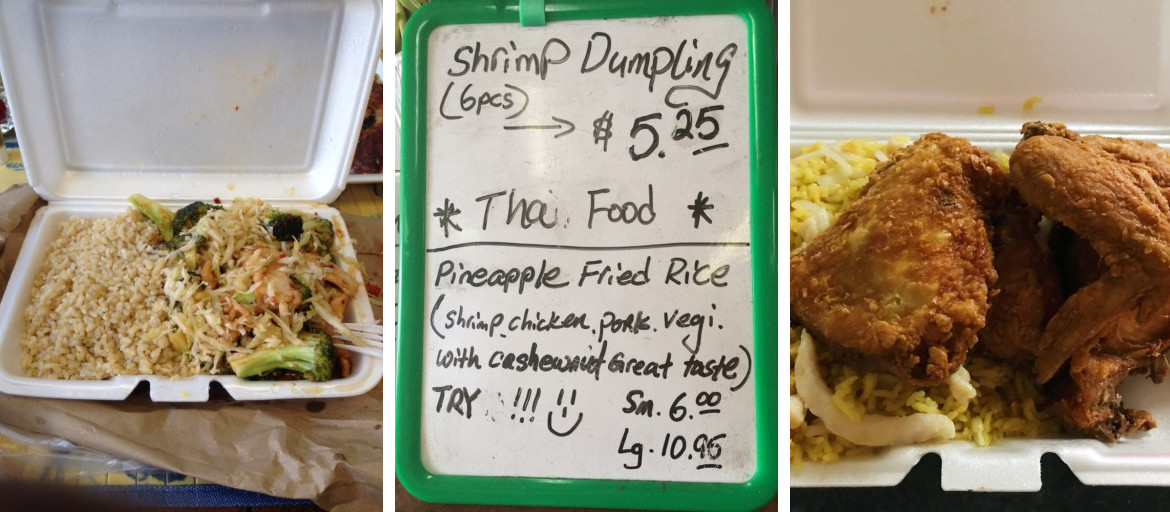 Shrimp Dumpling
(6pcs)
→ $ 5.25
* Thai Food *
Pineapple Fried Rice
(shrimp.chicken.pork.vegi.
with cashewnut Great taste)
TRY !!! Sm. 6.00
Lg. 10.95